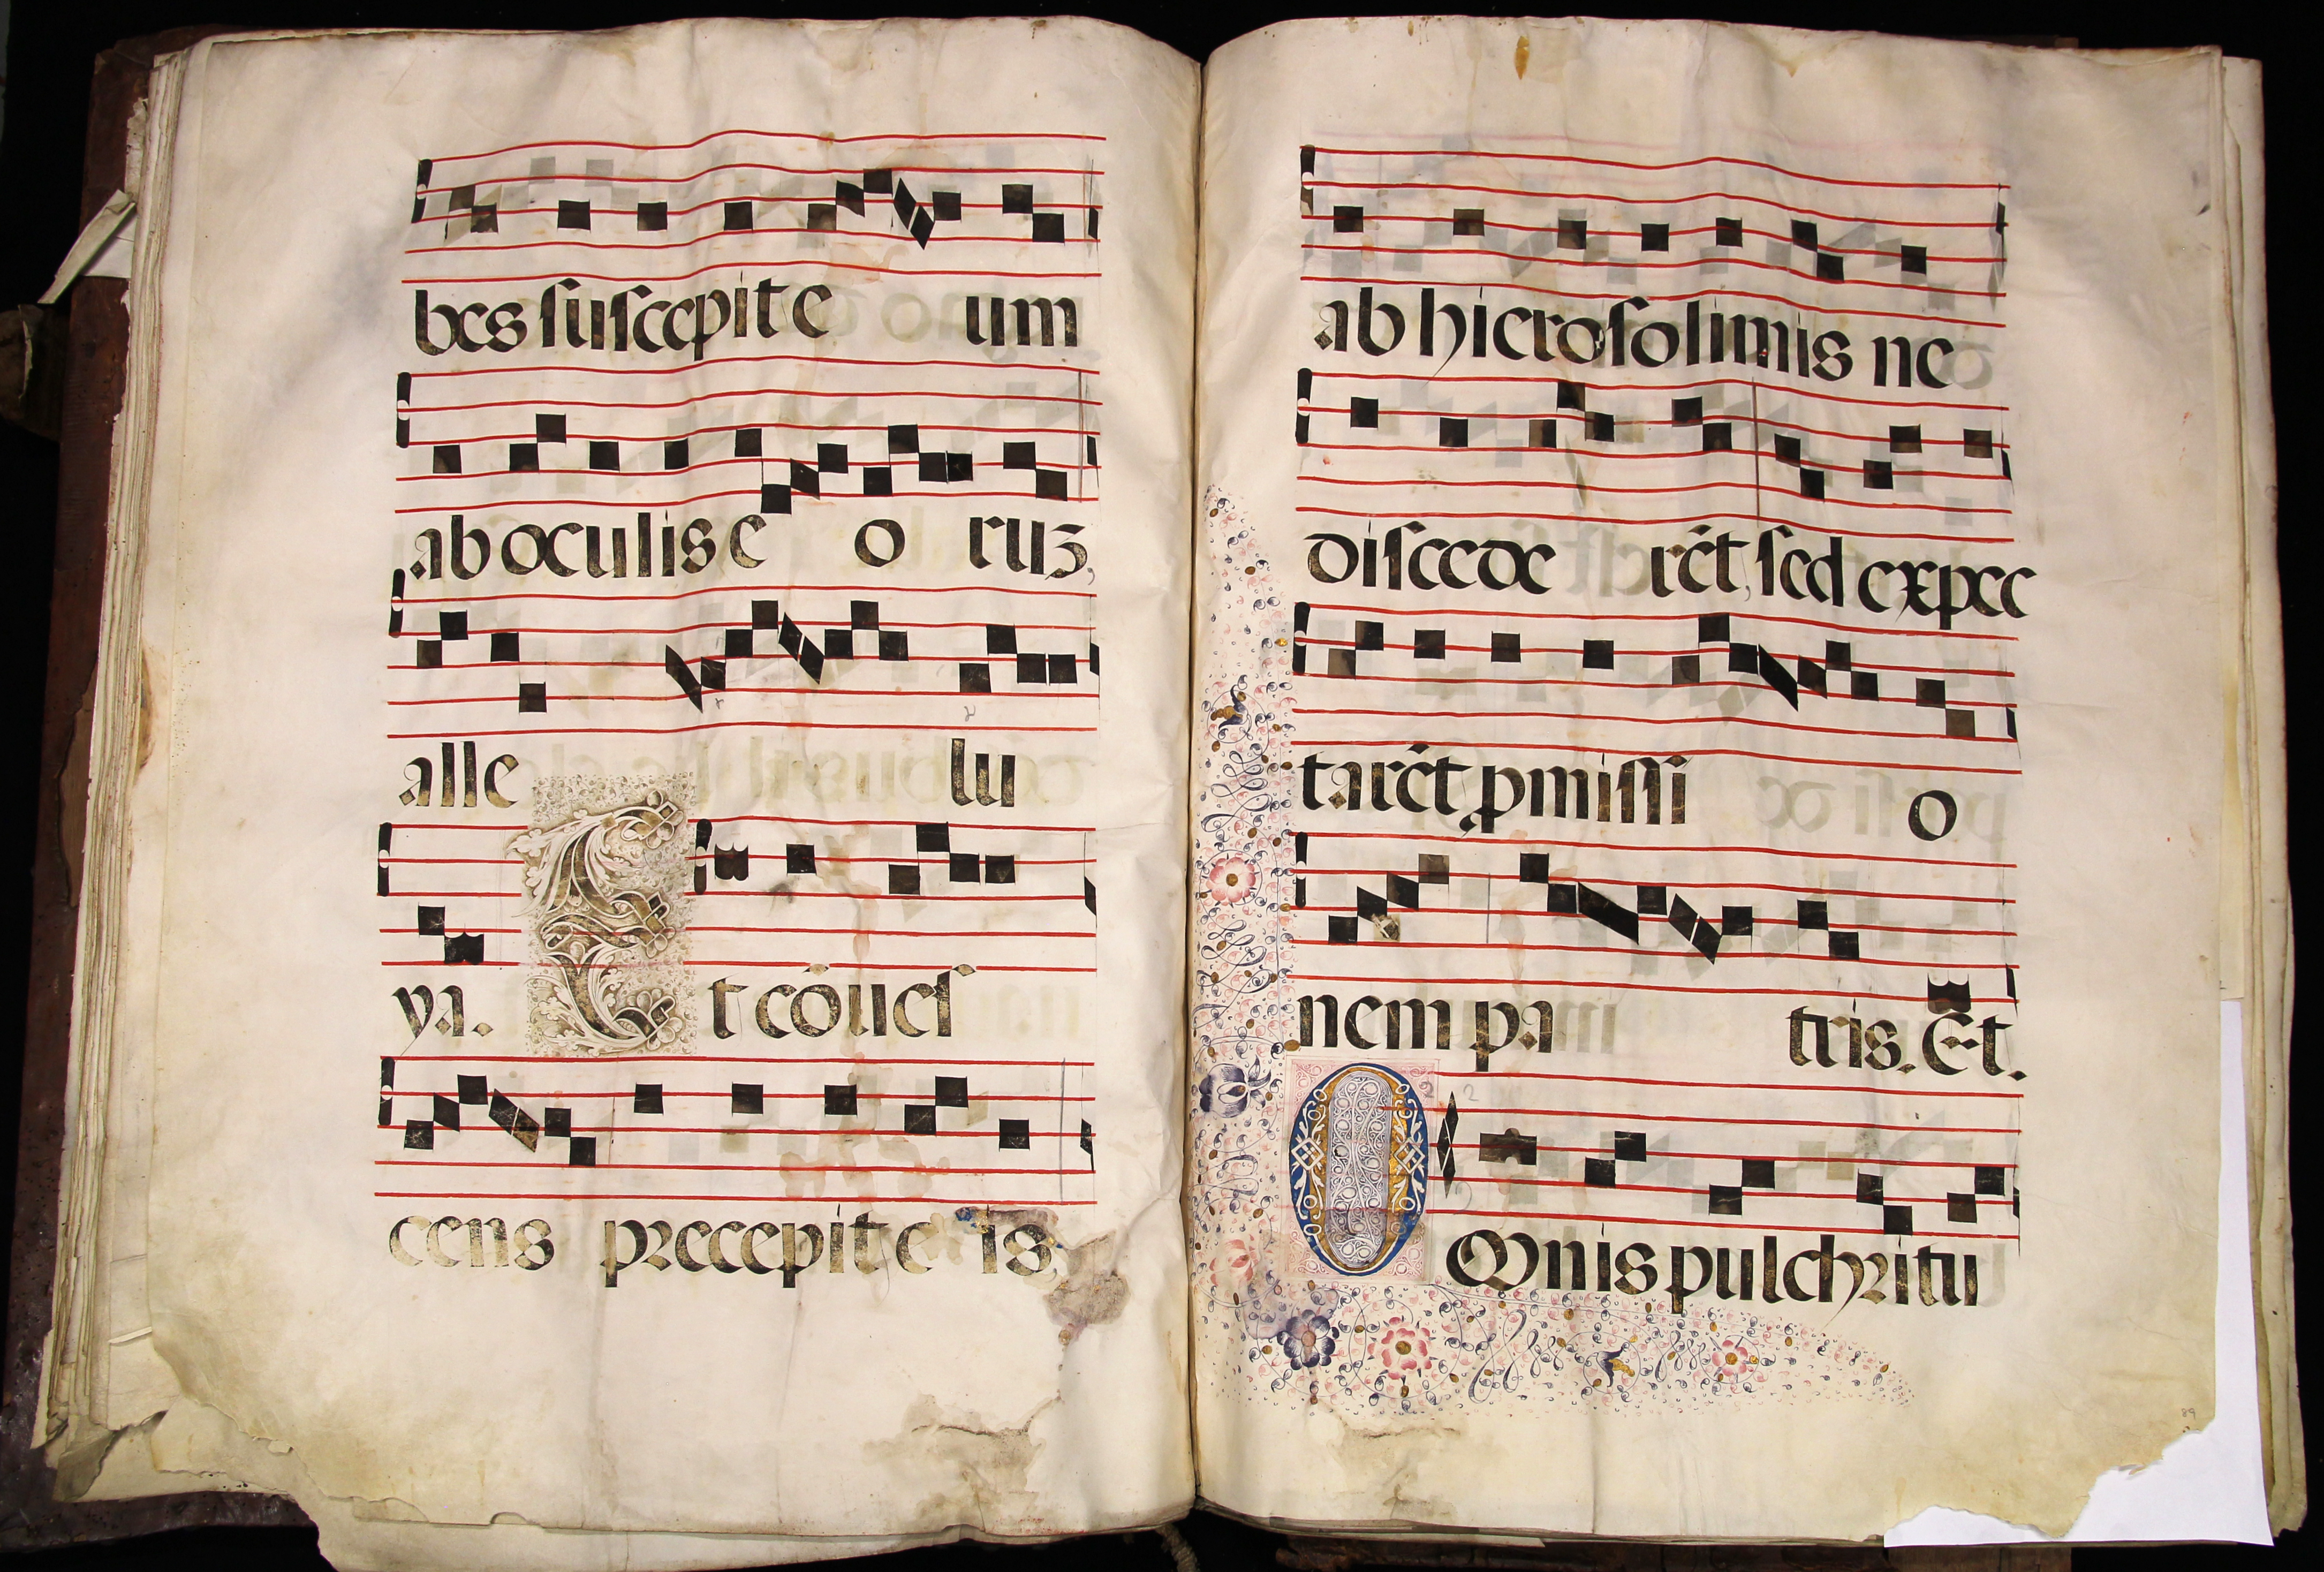 bes suscepit e um
ab oculis e o ruʒ,
alle lu
ya. Et cōueſ
cens precepit e is
ab hierosolimis ne
discede rēt, sed expec
tarēt ꝓmissi o
nem pa tris. Et.
O Omnis pulchritu
89